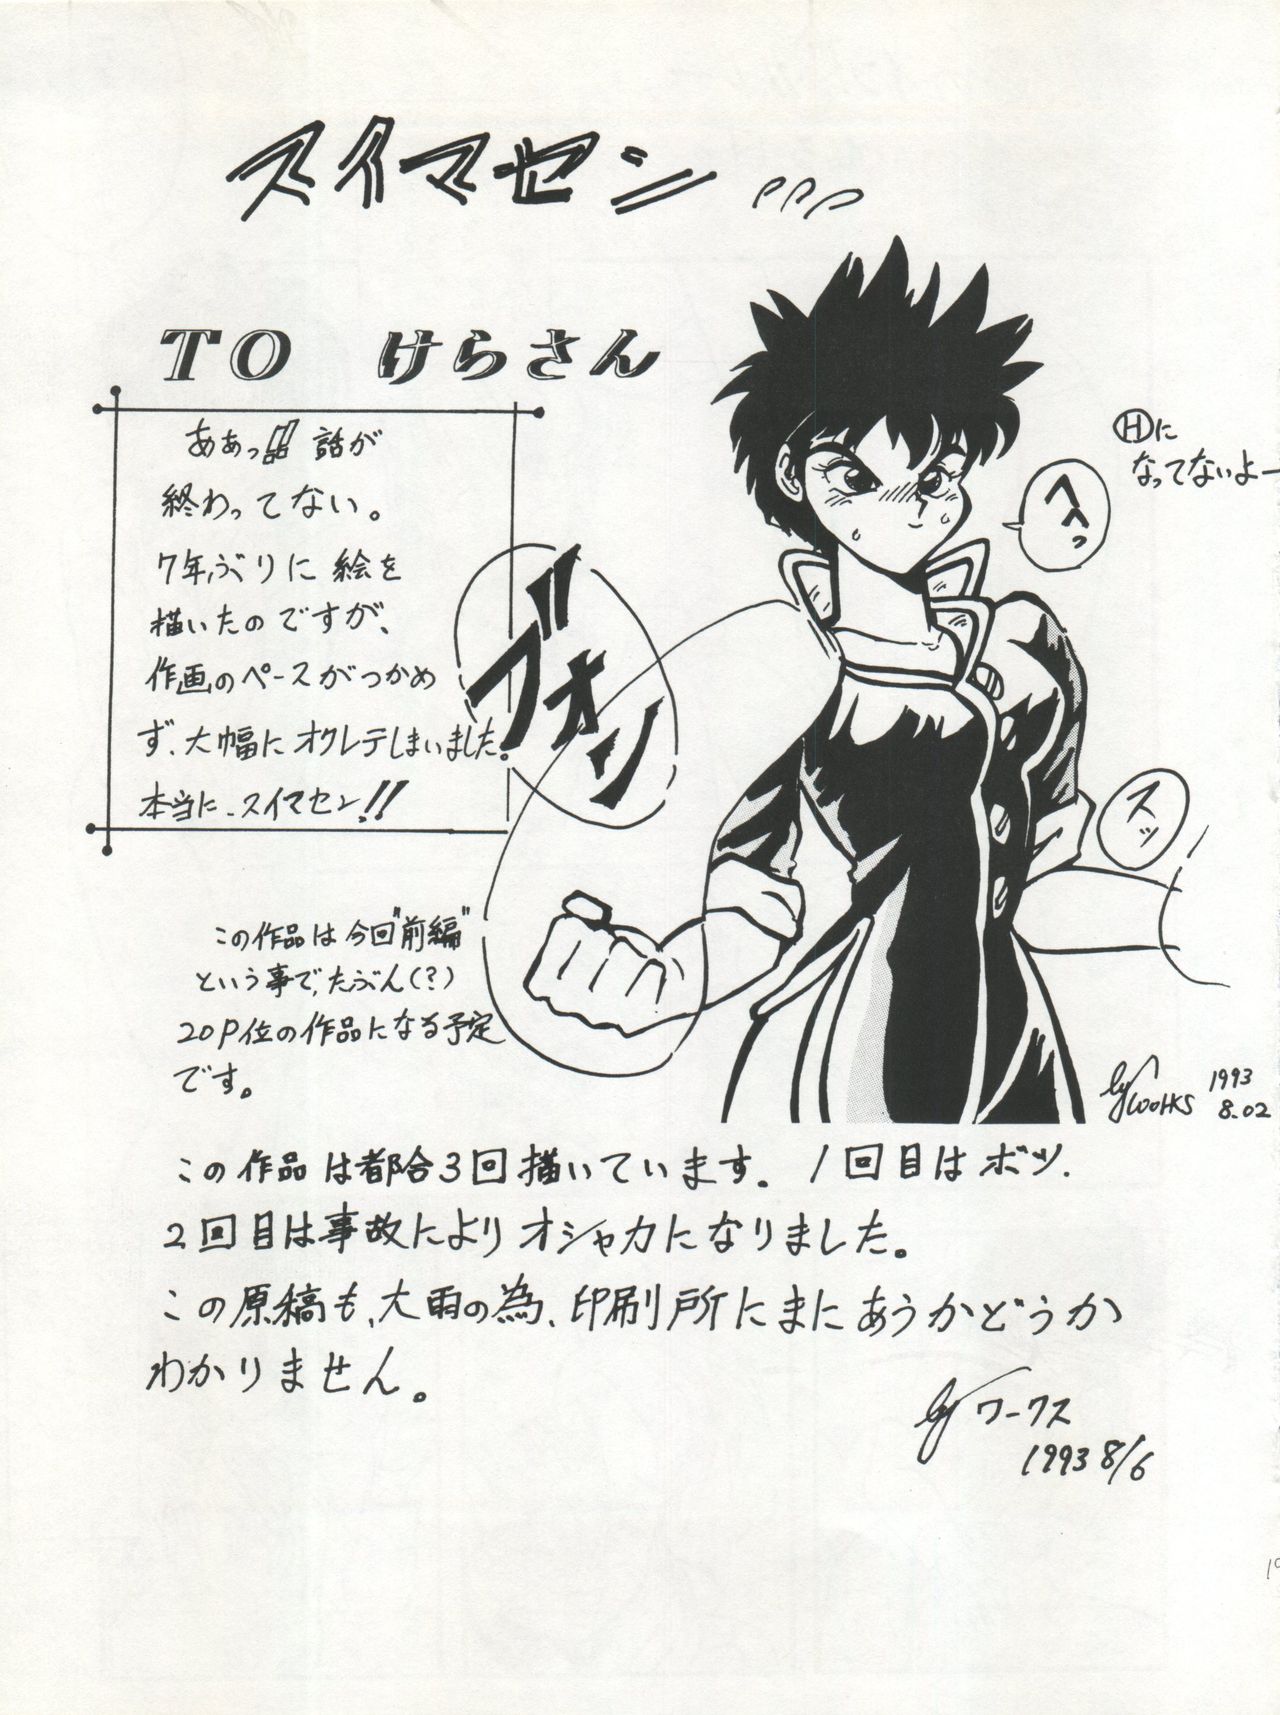 スイマセン
TO けらさん
ああっ!! 話が
終わってない。
7年ぶりに 絵を
描いたのですが、
作画のペースがつかめ
ず、大幅に オクレテしまいました。
本当に、スイマセン!!
Ⓗに
なってないよー
へへっ
ブオン
スッ
この作品は 今回"前編"
という事で、たぶん(?)
20P位の作品になる予定
です。
by WORKS 1993
8.02
この作品は都合3回描いています。1回目はボツ.
2回目は事故によりオシャカになりました。
この原稿も、大雨の為、印刷所にまにあうかどうか
わかりません。
by ワークス
1993 8/6